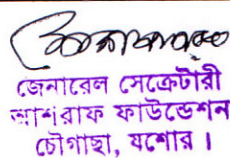 জেনারেল সেক্রেটারী
আশরাফ ফাউন্ডেশন
চৌগাছা, যশোর ।